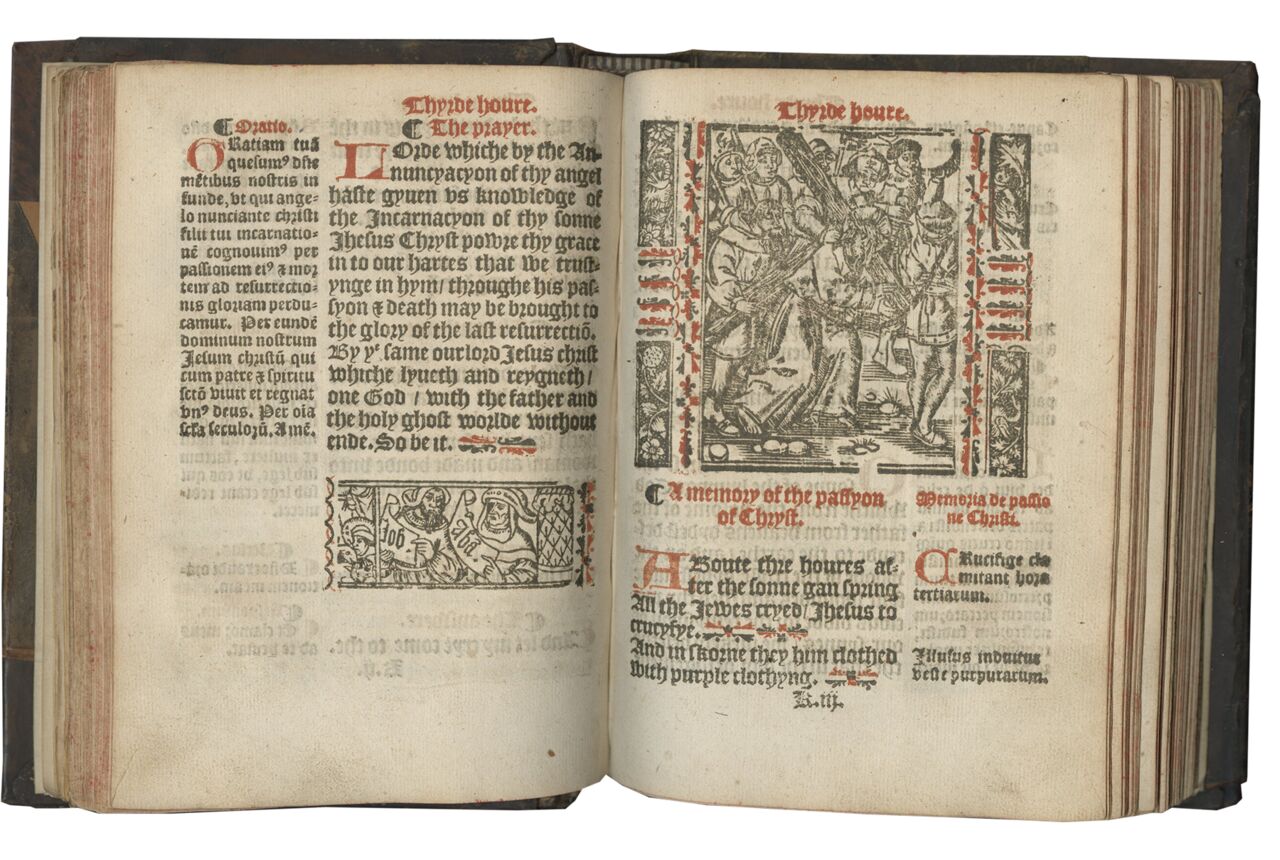 Thyrde houre.
¶ Oratio.
GRatiam tuã
quesumꝰ dñe
mẽtibus nostris in
funde, vt qui ange-
lo nunciante christi
filii tui incarnatio-
nẽ cognouimꝰ per
passionem eiꝰ ⁊ mor
tem ad resurrectio-
nis gloriam perdu-
camur. Per eundẽ
dominum nostrum
Jesum christũ qui
cum patre ⁊ spiritu
sctõ viuit et regnat
vnꝰ deus. Per oĩa
scĺa seculorũ. Amẽ.
¶ The prayer.
LOrde whiche by the An-
nuncyacyon of thy angel
haste gyuen vs knowledge of
the Incarnacyon of thy sonne
Jhesus Chryst powre thy grace
in to our hartes that we trust-
ynge in hym/ throughe his pas-
syon ⁊ death may be brought to
the glory of the last resurrectiõ.
By yᵉ same our lord Jesus christ
whiche lyueth and reygneth/
one God / with the father and
the holy ghost worlde without
ende. So be it.
Job
Thyrde houre.
¶ A memory of the passyon
of Chryst.
ABoute thre houres af-
ter the sonne gan spring
All the Jewes cryed/ Jhesus to
crucyfye.
And in skorne they him clothed
with purple clothyng.
K.iij.
Memoria de passio
ne Christi.
CRucifige cla
mitant hora
tertiarum.
Illusus induitur
veste purpurarum.